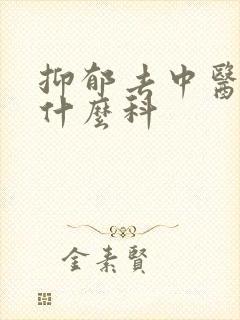 抑郁去中醫
什麼科
金素賢